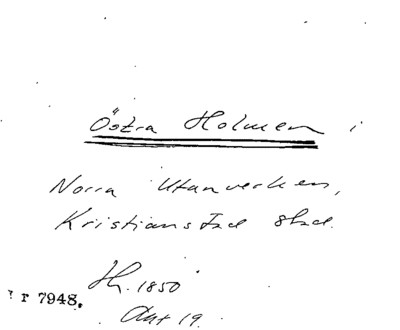 Östra Holmen i
Norra Utanverken,
Kristianstad stad.
Th. 1850
r 7948.
Akt 19.